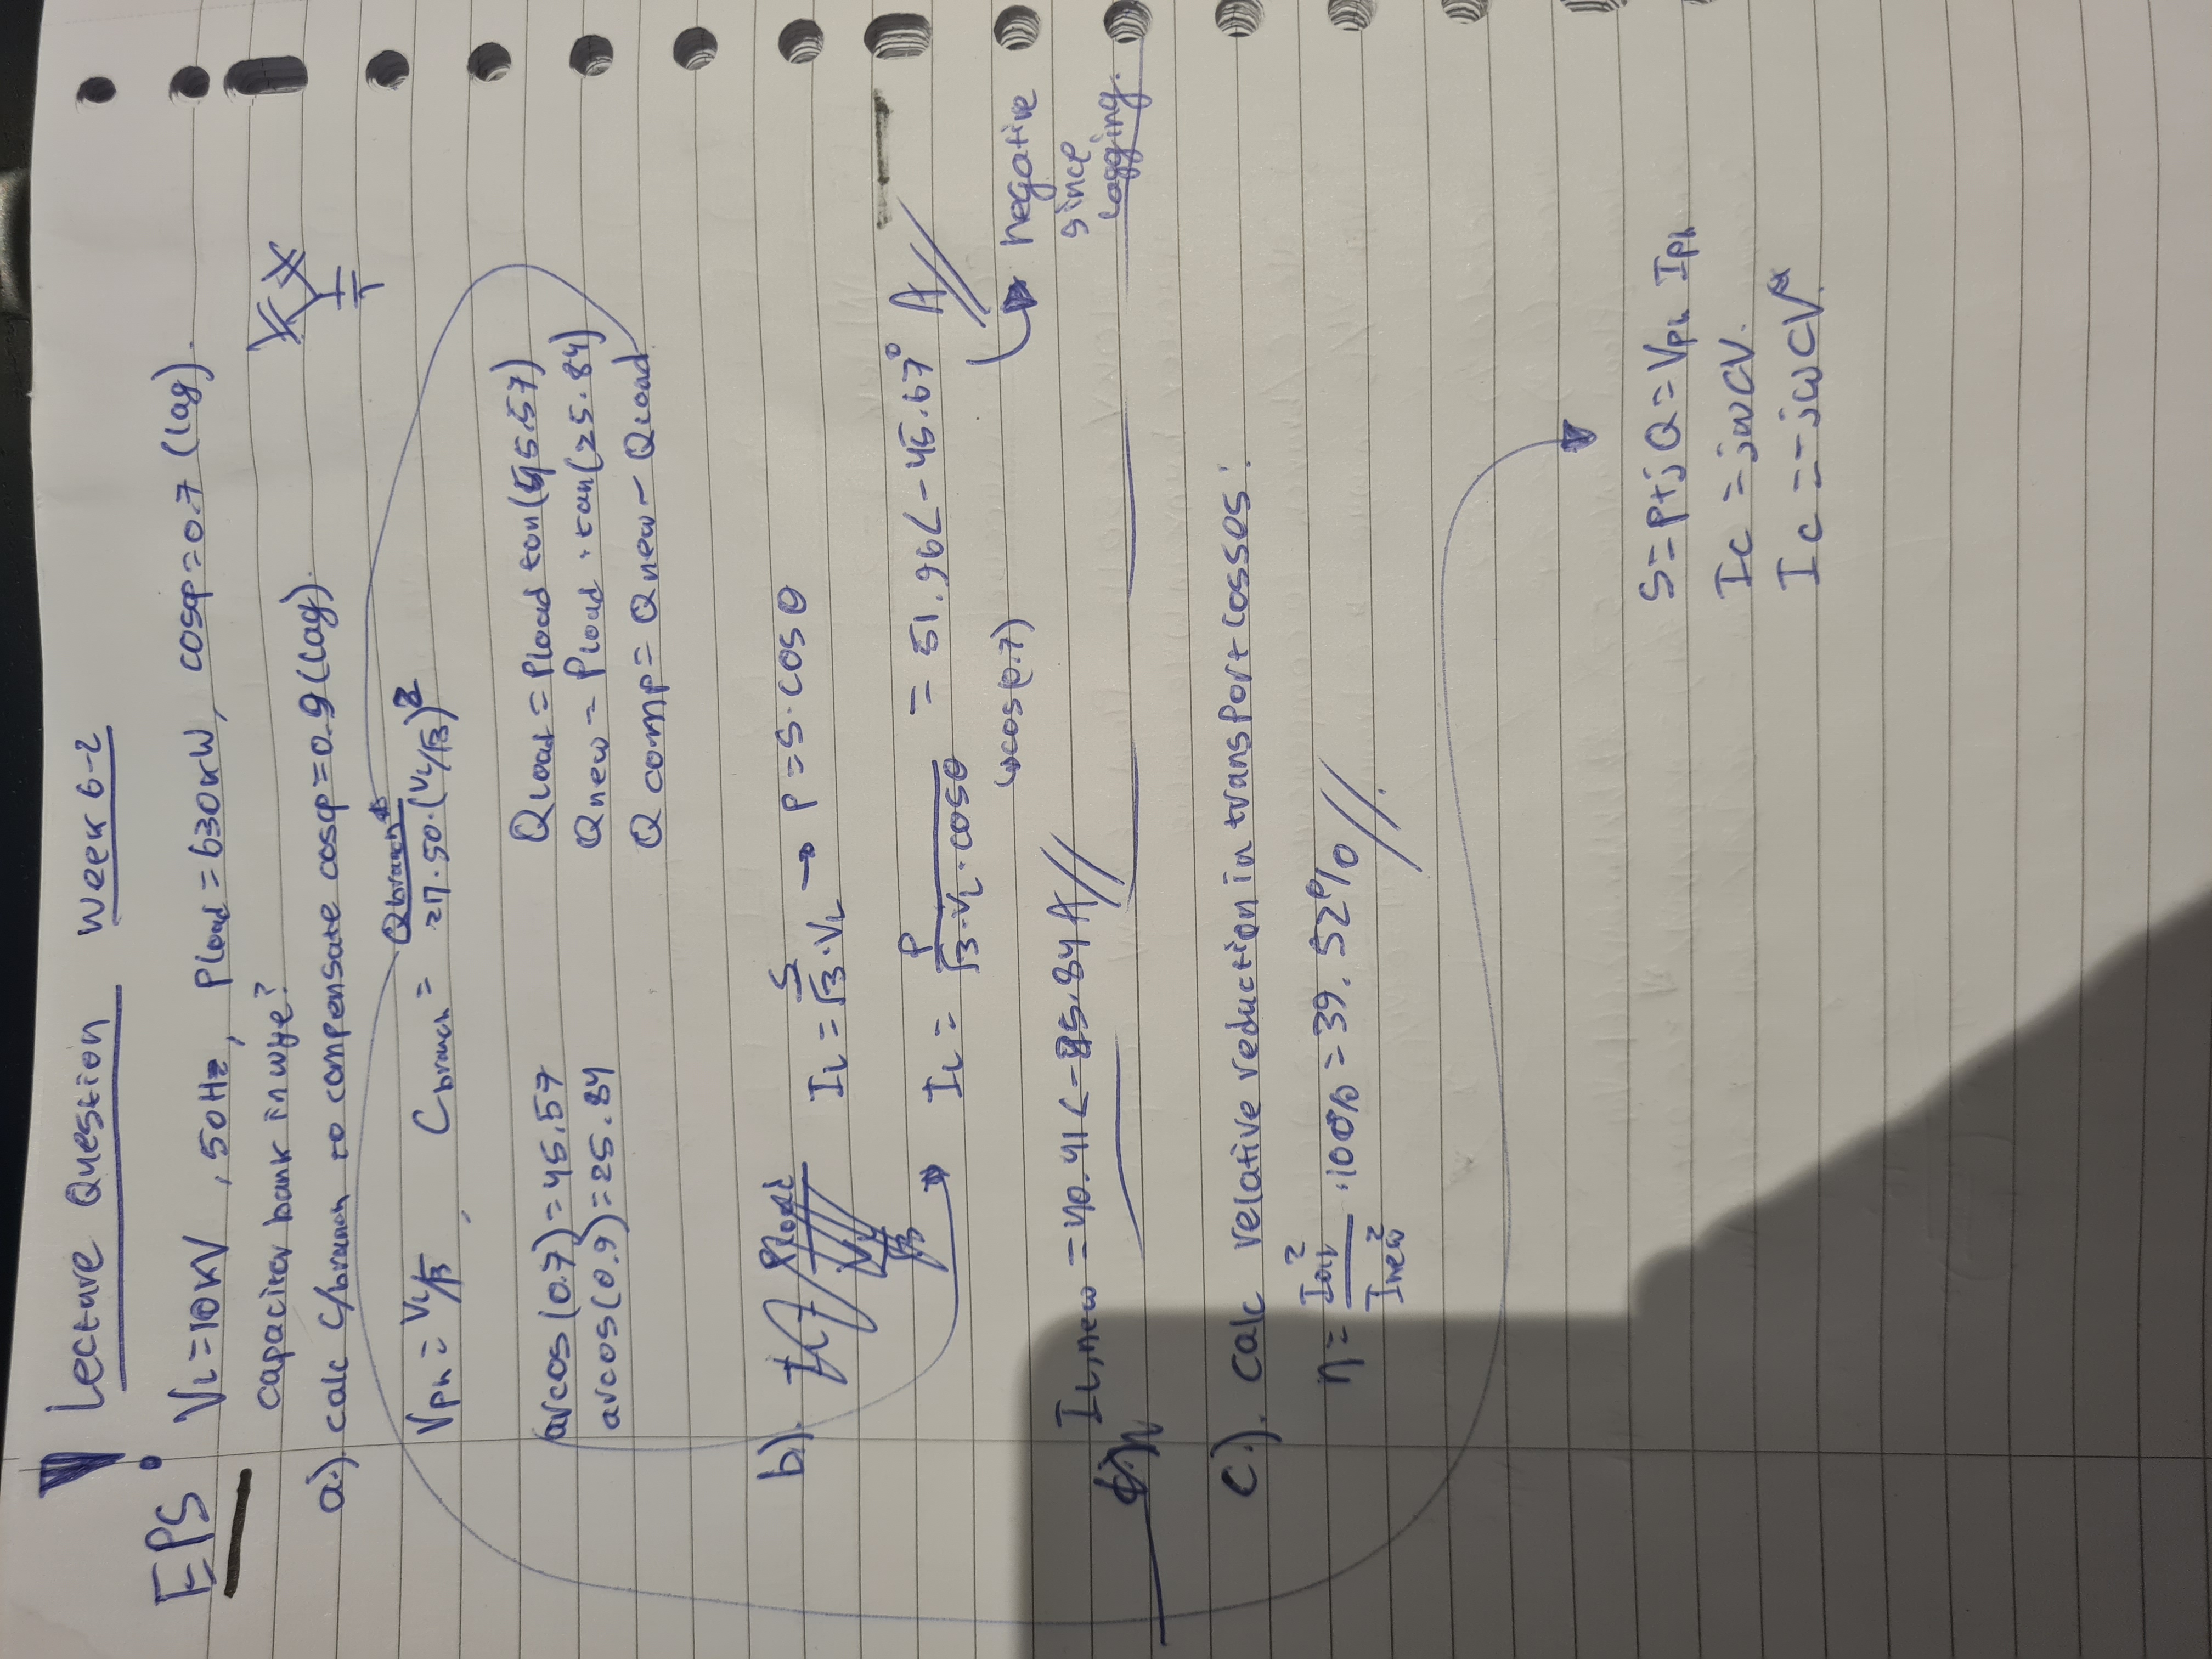 Lecture Question Week 6-2
EPS
VL=10kV , 50Hz, Pload=630kW, cosφ=0.7 (lag).
capacitor bank in wye?
a.) calc C/branch to compensate cosφ=0.9(lag).
Vph = VL/√3 , Cbranch = Qbranch / 2π·50·(VL/√3)^2
arcos(0.7)=45.57
arcos(0.9)=25.84
Qload = Pload tan(45.57)
Qnew = Pload · tan(25.84)
Q comp = Qnew - Qload
b.). IL = S / √3·VL → P=S·cosθ
IL = P / √3·VL·cosθ = 51.96∠-45.67° A
↳cos(0.7)
negative
since
lagging.
IL,new = 40.41∠-25.84 A
c.). calc relative reduction in transport losses:
η = / Inew² ·100% = 39.52%
S=P+jQ=Vph Iph
Ic = jωCV.
Ic =-jωCV